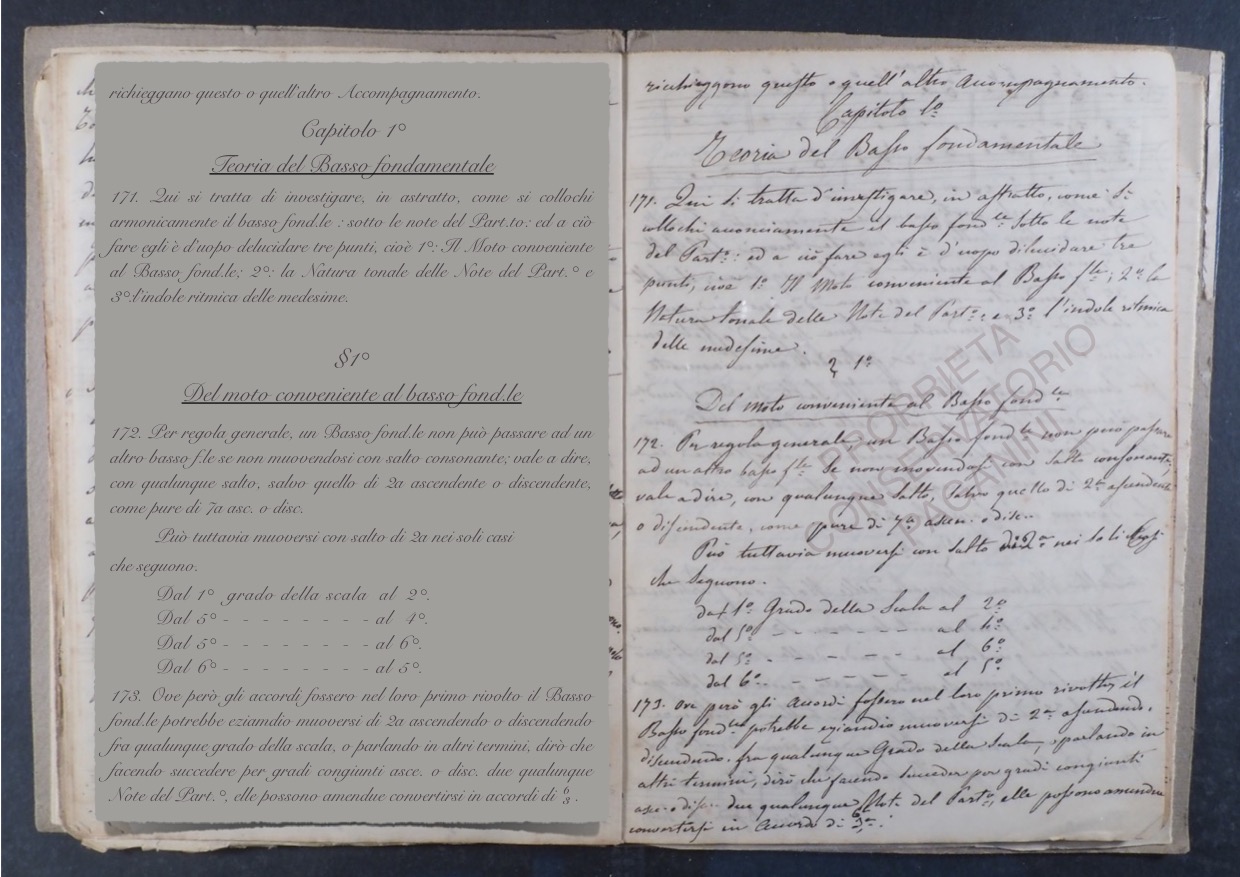 richieggano questo o quell'altro Accompagnamento.
Capitolo 1°
Teoria del Basso fondamentale
171. Qui si tratta di investigare, in astratto, come si collochi
armonicamente il basso fond.le : sotto le note del Part.to: ed a ciò
fare egli è d'uopo delucidare tre punti, cioè 1°: Il Moto conveniente
al Basso fond.le; 2°: la Natura tonale delle Note del Part.° e
3°.l'indole ritmica delle medesime.
§1°
Del moto conveniente al basso fond.le
172. Per regola generale, un Basso fond.le non può passare ad un
altro basso f.le se non muovendosi con salto consonante; vale a dire,
con qualunque salto, salvo quello di 2a ascendente o discendente,
come pure di 7a asc. o disc.
Può tuttavia muoversi con salto di 2a nei soli casi
che seguono.
Dal 1° grado della scala al 2°.
Dal 5° - - - - - - - - al 4°.
Dal 5° - - - - - - - - al 6°.
Dal 6° - - - - - - - - al 5°.
173. Ove però gli accordi fossero nel loro primo rivolto il Basso
fond.le potrebbe eziamdio muoversi di 2a ascendendo o discendendo
fra qualunque grado della scala, o parlando in altri termini, dirò che
facendo succedere per gradi congiunti asce. o disc. due qualunque
Note del Part.°, elle possono amendue convertirsi in accordi di 6/3 .
richieggono questo o quell'altro Accompagnamento.
Capitolo 1°
Teoria del Basso fondamentale
171. Qui si tratta d'investigare, in astratto, come si
collochi armonicamente il basso fond.le sotto le note
del Part.°: ed a ciò fare egli è d'uopo dilucidare tre
punti, cioè 1° Il Moto conveniente al Basso f.le; 2° la
Natura tonale delle Note del Part.°: e 3° l'indole ritmica
delle medesime.
§ 1°
Del moto conveniente al Basso fond.le
172. Per regola generale un Basso fond.le non può passare
ad un altro basso f.le se non movendosi con salto consonante,
vale a dire, con qualunque salto, salvo quello di 2a ascendente
o discendente, come pure di 7a ascen. o disc.
Può tuttavia muoversi con salto di 2a nei soli Casi
che seguono.
dal 1° Grado della Scala al 2°
dal 5° - - - - - - al 4°
dal 5° - - - - - - al 6°
dal 6° al 5°
173. Ove però gli Accordi fossero nel loro primo rivolto, il
Basso fond.le potrebbe eziandio muoversi di 2a ascendendo,
discendendo, fra qualunque Grado della Scala, o parlando in
altri termini, dirò che facendo succeder per gradi congiunti
asc. o disc. due qualunque Note del Part.°, elle possono amendue
convertirsi in Accordi di 6/3.
PROPRIETA
CONSERVATORIO
PAGANINI